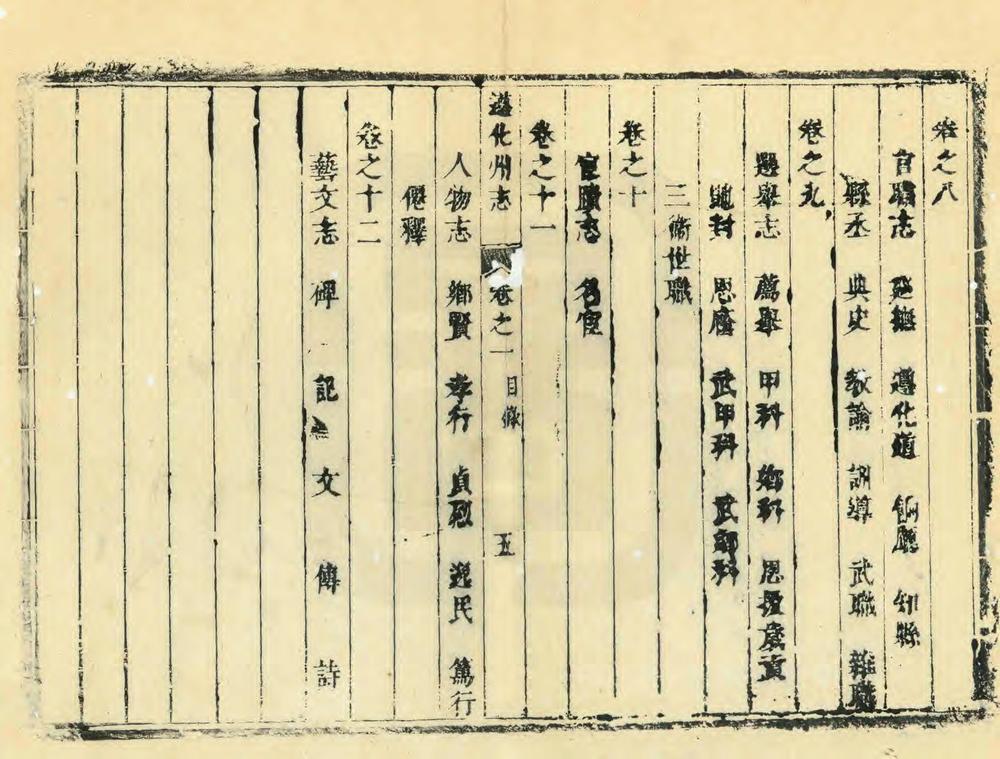 卷之八
官職志 巡撫 遵化道 餉廳 知縣
縣丞 典史 教諭 訓導 武職 雜職
卷之九
選舉志 薦舉 甲科 鄉科 恩拔歲貢
馳封 恩廕 武甲科 武鄉科
三衛世職
卷之十
宦蹟志 名宦
卷之十一
遵化州志 卷之一 目錄 五
人物志 鄉賢 孝行 貞烈 逸民 篤行
僊釋
卷之十二
藝文志 碑 記 文 傳 詩